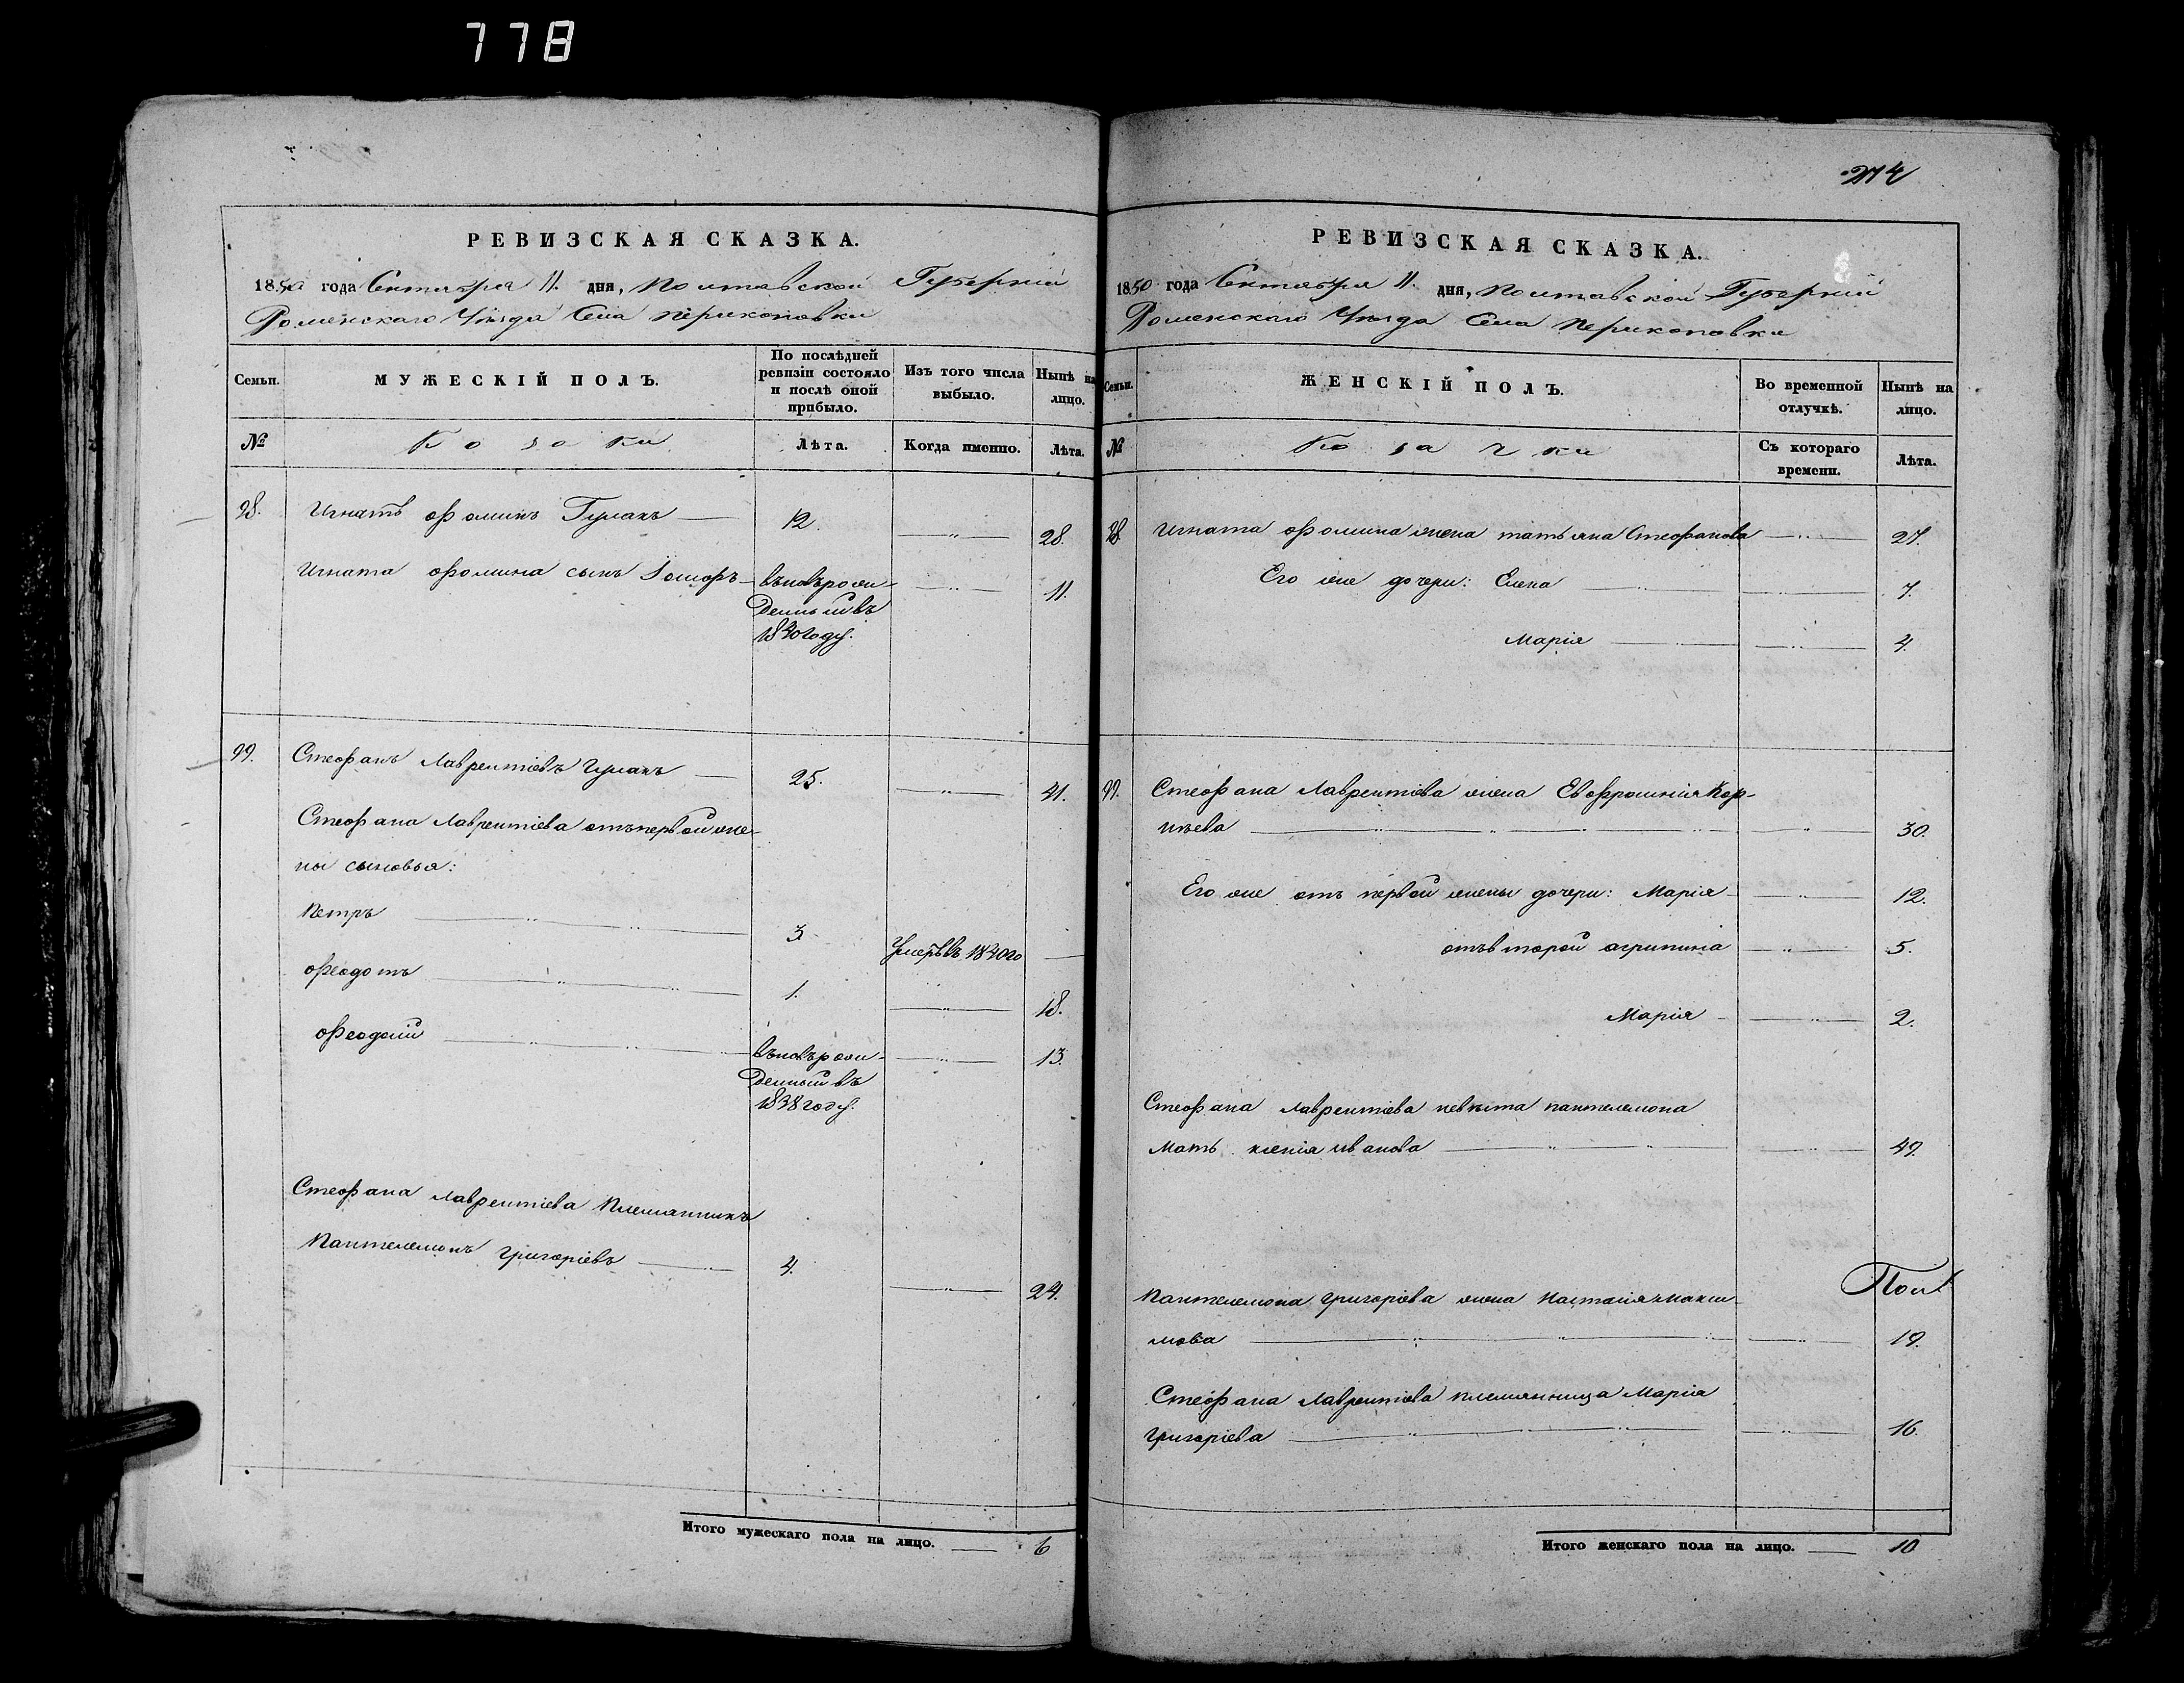 778
РЕВИЗСКАЯ СКАЗКА.
1850 года Сентября 11. дня, Полтавской Губерніи
Роменскаго Уѣзда Села Перикоповки
Семьи.
МУЖЕСКІЙ ПОЛЪ.
По послѣдней ревизіи состояло и послѣ оной прибыло.
Изъ того числа выбыло.
Нынѣ на лицо.
№
Козаки
Лѣта.
Когда именно.
Лѣта.
98. Игнатъ Фоминъ Гумакъ 12. 28.
Игната Фомина сынъ вновьрож- 11.
денный въ
1840 году.
99. Стефанъ Лаврентіевъ Гумакъ 25. 41.
Стефана Лаврентіева отъ первой же-
ны сыновья:
Петръ 3. Умеръ въ 1840 го
Феодотъ 1. 18.
Феодосій вновьрож- 13.
денный въ
1838 году.
Стефана Лаврентіева племянникъ
Пантелемонъ Григоріевъ 4. 24.
Итого мужескаго пола на лицо. 6
274
РЕВИЗСКАЯ СКАЗКА.
1850 года Сентября 11. дня, Полтавской Губерніи
Роменскаго Уѣзда Села Перикоповки
Семьи.
ЖЕНСКІЙ ПОЛЪ.
Во временной отлучкѣ.
Нынѣ на лицо.
№
Козачки
Съ котораго времени.
Лѣта.
98. Игната Фомина жена татьяна Стефанова 27.
Его же дочери: Елена 7.
Марія 4.
99. Стефана Лаврентіева жена Евфросинія Кор-
нѣева 30.
Его же отъ первой жены дочери: Марія 12.
отъ второй агрипина 5.
Марія 2.
Стефана Лаврентіева невѣста пантелемона
мать ксенія иванова 49.
Пантелемона Григоріева жена Настасія Макси-
мова 19.
Стефана Лаврентіева племянница Марія
Григоріева 16.
Итого женскаго пола на лицо. 10